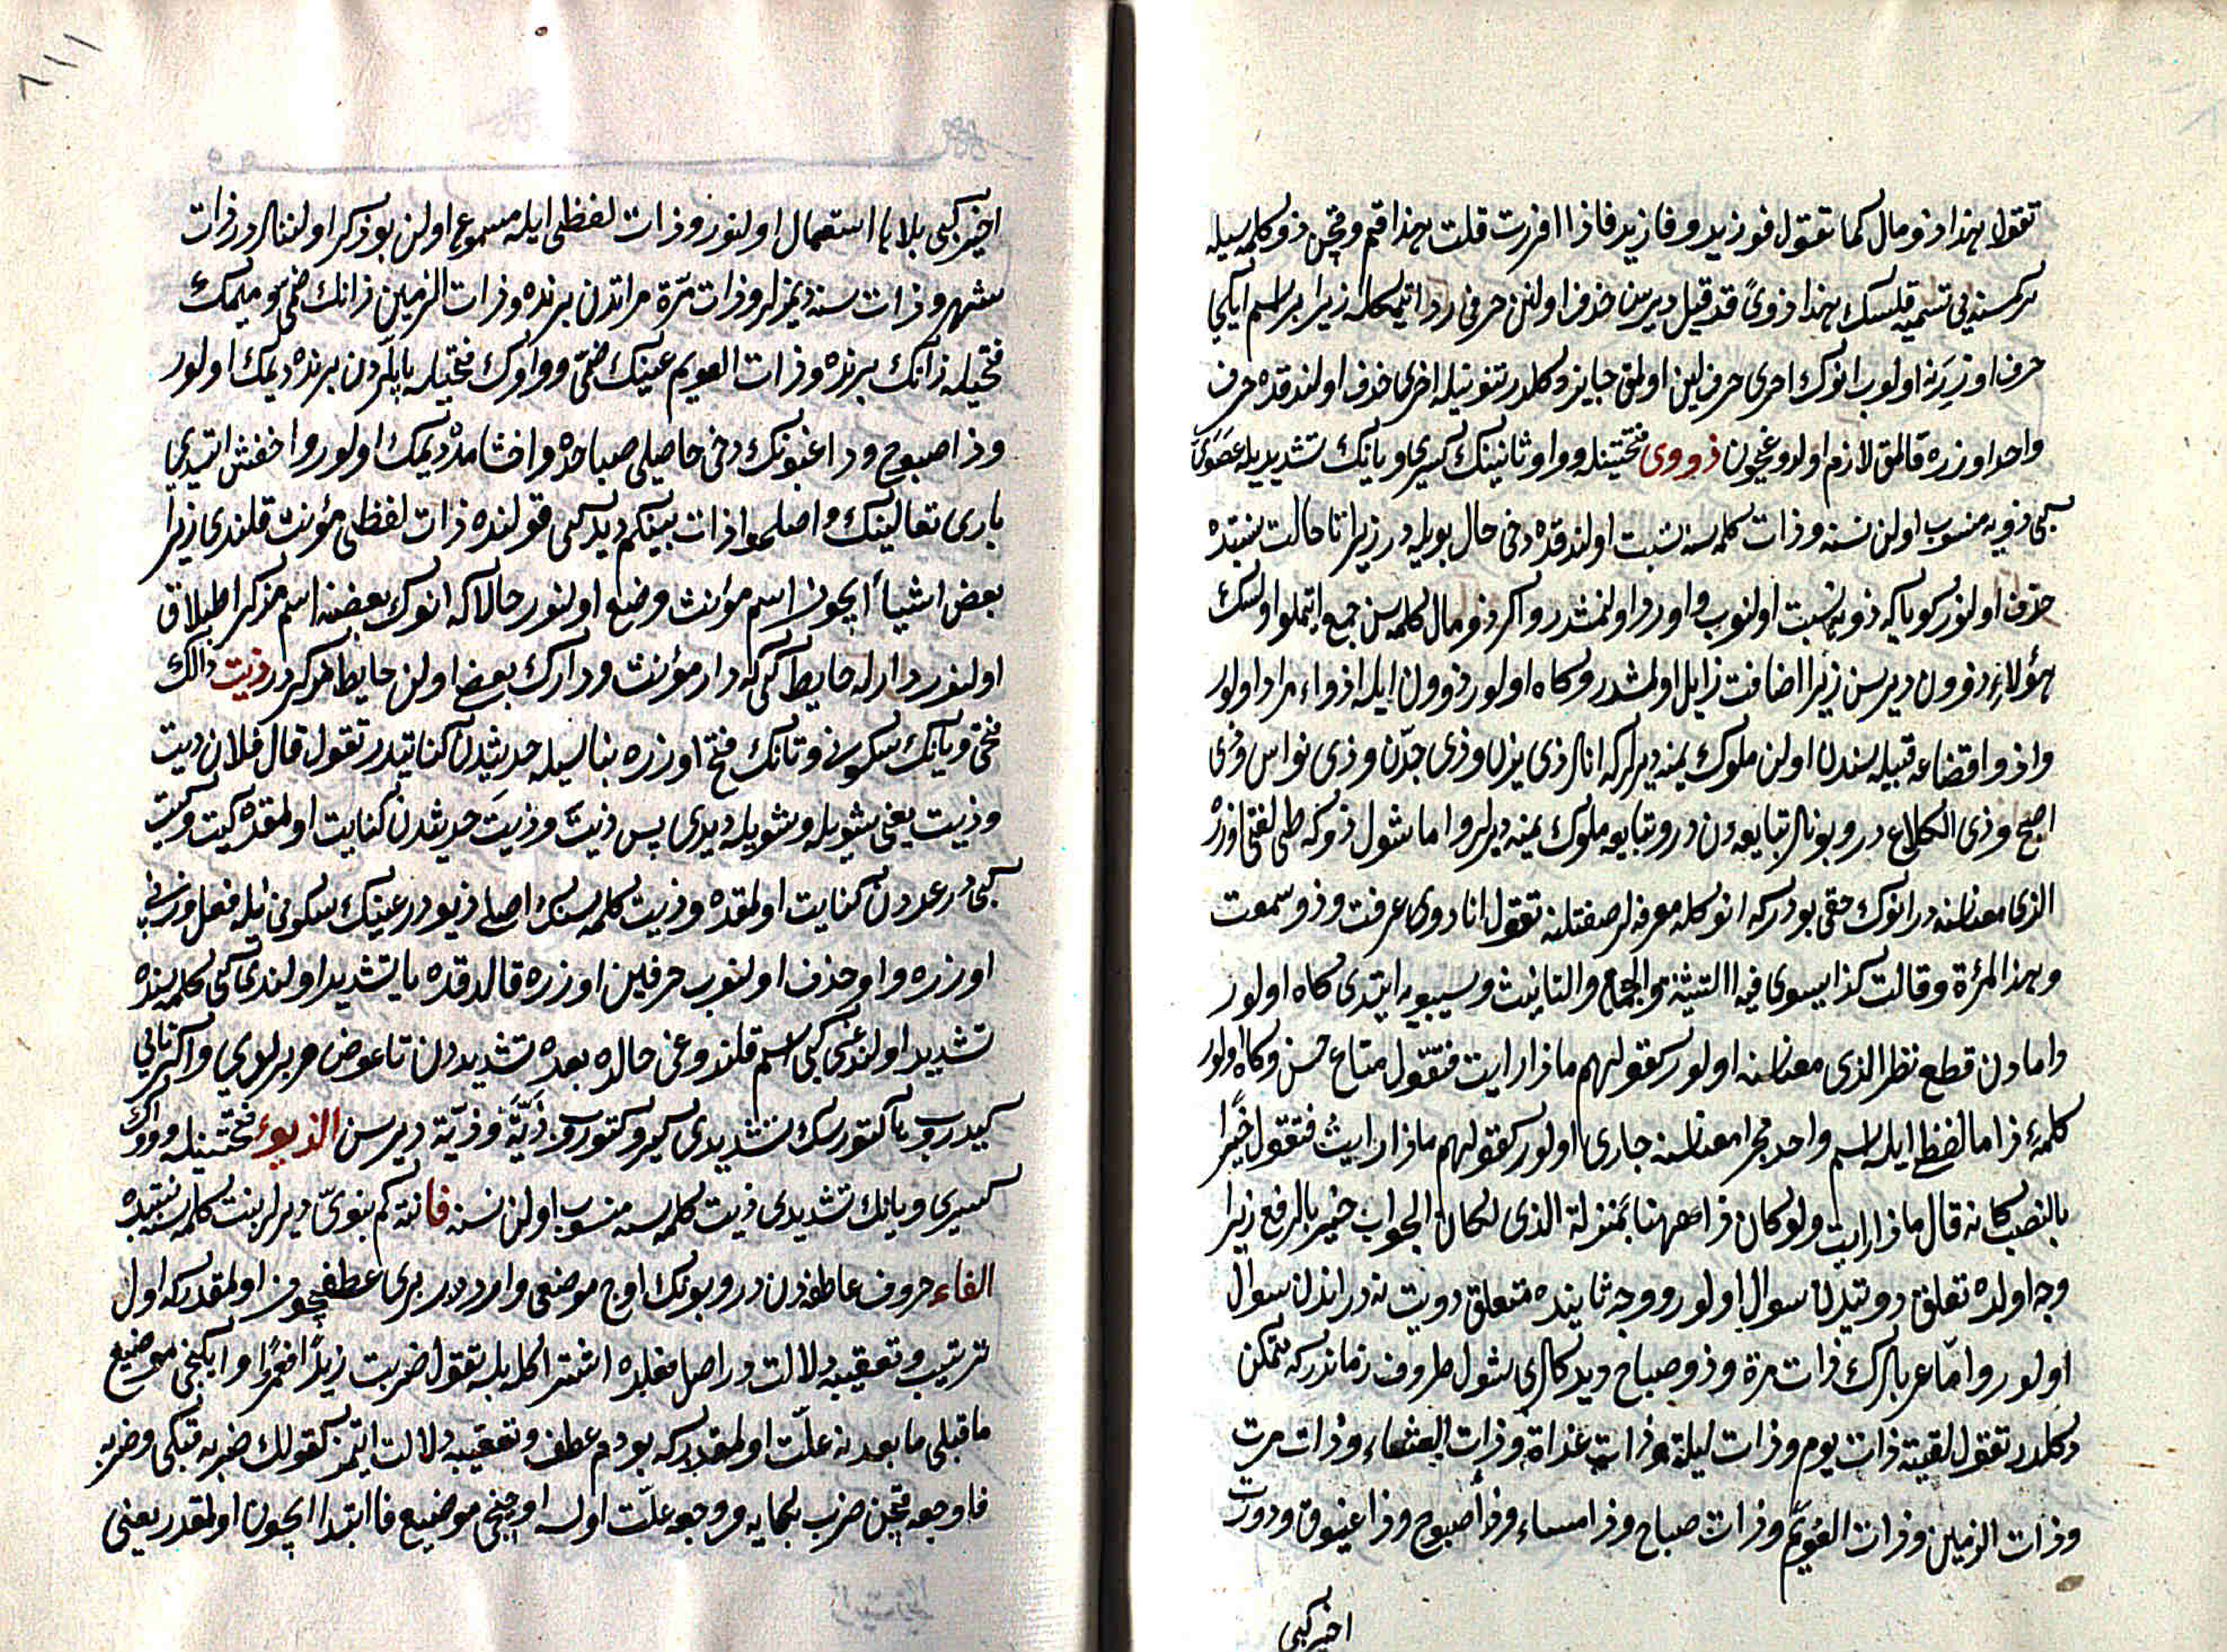 تقول هذا ذو مال كما تقول فو زيد و فا زيد فاذا افردت قلت هذا فم وقچن ذو كلمه سيله
بر كمسنه يى تسميه قلسك هذا ذوىً قد قيل ديرسن حذف اولنن حرفى رد اتمكله زيرا بر اسم ايكى
حرف اوزرنه اولوب انوك احرى حرف لين اولمق جايز دكلدر تنوينله اخرى حذف اولندقده حرف
واحد اوزره قالمق لازم اولدوغيچون ذووى فتحتينله و واو ثانينك كسرى و يانك تشديديله عصوى
كبى ذويه منسوب اولن نسنه و ذات كلمه سنه نسبت اولندقده دخى حال بويله در زيرا تا حالت نسبتده
حذف اولنور كويا كه ذويه نسبت اولنوب واو رد اولنمشدر و اكر ذو مال كلمه سن جمع ايتملو اولسك
هؤلاء ذوون ديرسن زيرا اضافت زايل اولمشدر و كاه اولور ذوون ايله اذواء مراد اولور
واذوا قضاعه قبيله سندن اولن ملوك يمنه ديرلر كه انلر ذى يزن و ذى جدن و ذى نواس و ذى
اصبح و ذى الكلاع در و بونلر تبايعه دن در و تبايعه ملوك يمنه ديرلر و اما شول ذو كه طى لغتى اوزره
الذى معناسنه در انوك حقى بودر كه انوكله معرفه لر صفتلنه تقول انا ذو عرفت و ذو سمعت
و هذا المرئة و قالت كذا يستوى فيه التثنية و الجمع و التانيث و سيبويه ايتدى كاه اولور
ذا مادن قطع نظر الذى معناسنه اولور كقولهم ماذا رايت فتقول متاع حسن و كاه اولور
كلمه ذا ما لفظى ايله اسم واحد مجرا معناسنه جارى اولور كقولهم ماذا رايت فتقول خيرا
بالنصب كانه قال ما ذا رايت و لو كان ذا ههنا بمنزلة الذى لكان الجواب خير بالرفع زيرا
وجه اولده تعلق رويتدن سوال اولور و وجه ثانيده متعلق رويت نه در اندن سوال
اولور و اما عربلرك ذات مرة و ذو صباح ديدكلرى شول ظروف زماندر كه متمكن
دكلدر تقول لقيته ذات يوم و ذات ليلة و ذات غداة و ذات العشاء و ذات مرت
و ذات الزمين و ذات العويم و ذات صباح و ذا مساء و ذا صبوح و ذا غبوق و دورت
اخير كبى
٨١١
اخير كبى بلا يا استعمال اولنور و ذات لفظى ايله مسموع اولن بو ذكر اولنانلر در ذات
شهر و ذات سنه ديمزلر و ذات مرة مراتدن برنده و ذات الزمين زانك ضمى و ميمك
فتحيله زمانك برنده و ذات العويم عينك ضمى و واوك فتحيله ييللردن برنده ديمك اولور
و ذا صبوح و ذا غبوقك دخى حاصلى صباحده و اخشامده ديمك اولور و اخفش ايتدى
بارى تعالينك و اصلحوا ذات بينكم ديديكى قولنده ذات لفظى مؤنث قلندى زيرا
بعض اشيا ايچون اسم مؤنث وضع اولنور حالا كه انوك بعضنه اسم مذكر اطلاق
اولنور دار ايله حايط كبى كه دار مؤنث و دارك بعضى اولن حايط مذكردر ذيت ذالك
فتحى و يانك سكونى و تانك فتح اوزره بناسيله حديثدن كنايتدر تقول قال فلان ذيت
و ذيت يعنى شويله و شويله ديدى پس ذيت و ذيت حديثدن كنايت اولمقده كيت و كيت
كبيدر عددن كنايت اولمقده و ذيت كلمه سنك اصلى ذيو در عينك سكونى ايله فعل وزنى
اوزره واو حذف اولنوب حرفين اوزره قالدقده يا تشديد اولندى كى كلمه سنده
تشديد اولندغى كبى اسم قلندوغى حالده بعده تشديددن تا عوض ويرلدى و اكر تايى
كيدروب يا كتورسك تشديدى كيرو كتوروب ذيّة و ذيّة ديرسن الذيوى فتحتينله و واوك
كسرى و يانك تشديدى ذيت كلمه سنه منسوب اولن نسنه فانته كم بنوىّ ديرلر بنت كلمه سنه نسبتده
الفاء حروف عاطفه دن در و بونك اوچ موضعى واردر برى عطف ايچون اولمقدر كه اول
ترتيب و تعقيبه دلالت در اصل فعلده اشتراكله بله تقول ضربت زيدًا فعمرًا و ايكنجى موضع
ما قبلى ما بعدنه علت اولمقدر كه بودم عطف و تعقيبه دلالت ايتمز كقولك ضربه فبكى و ضربه
فاوجعه قچن ضرب بكايه و وجعه علت اوله اوچنجى موضع فا ابتدا ايچون اولمقدر يعنى